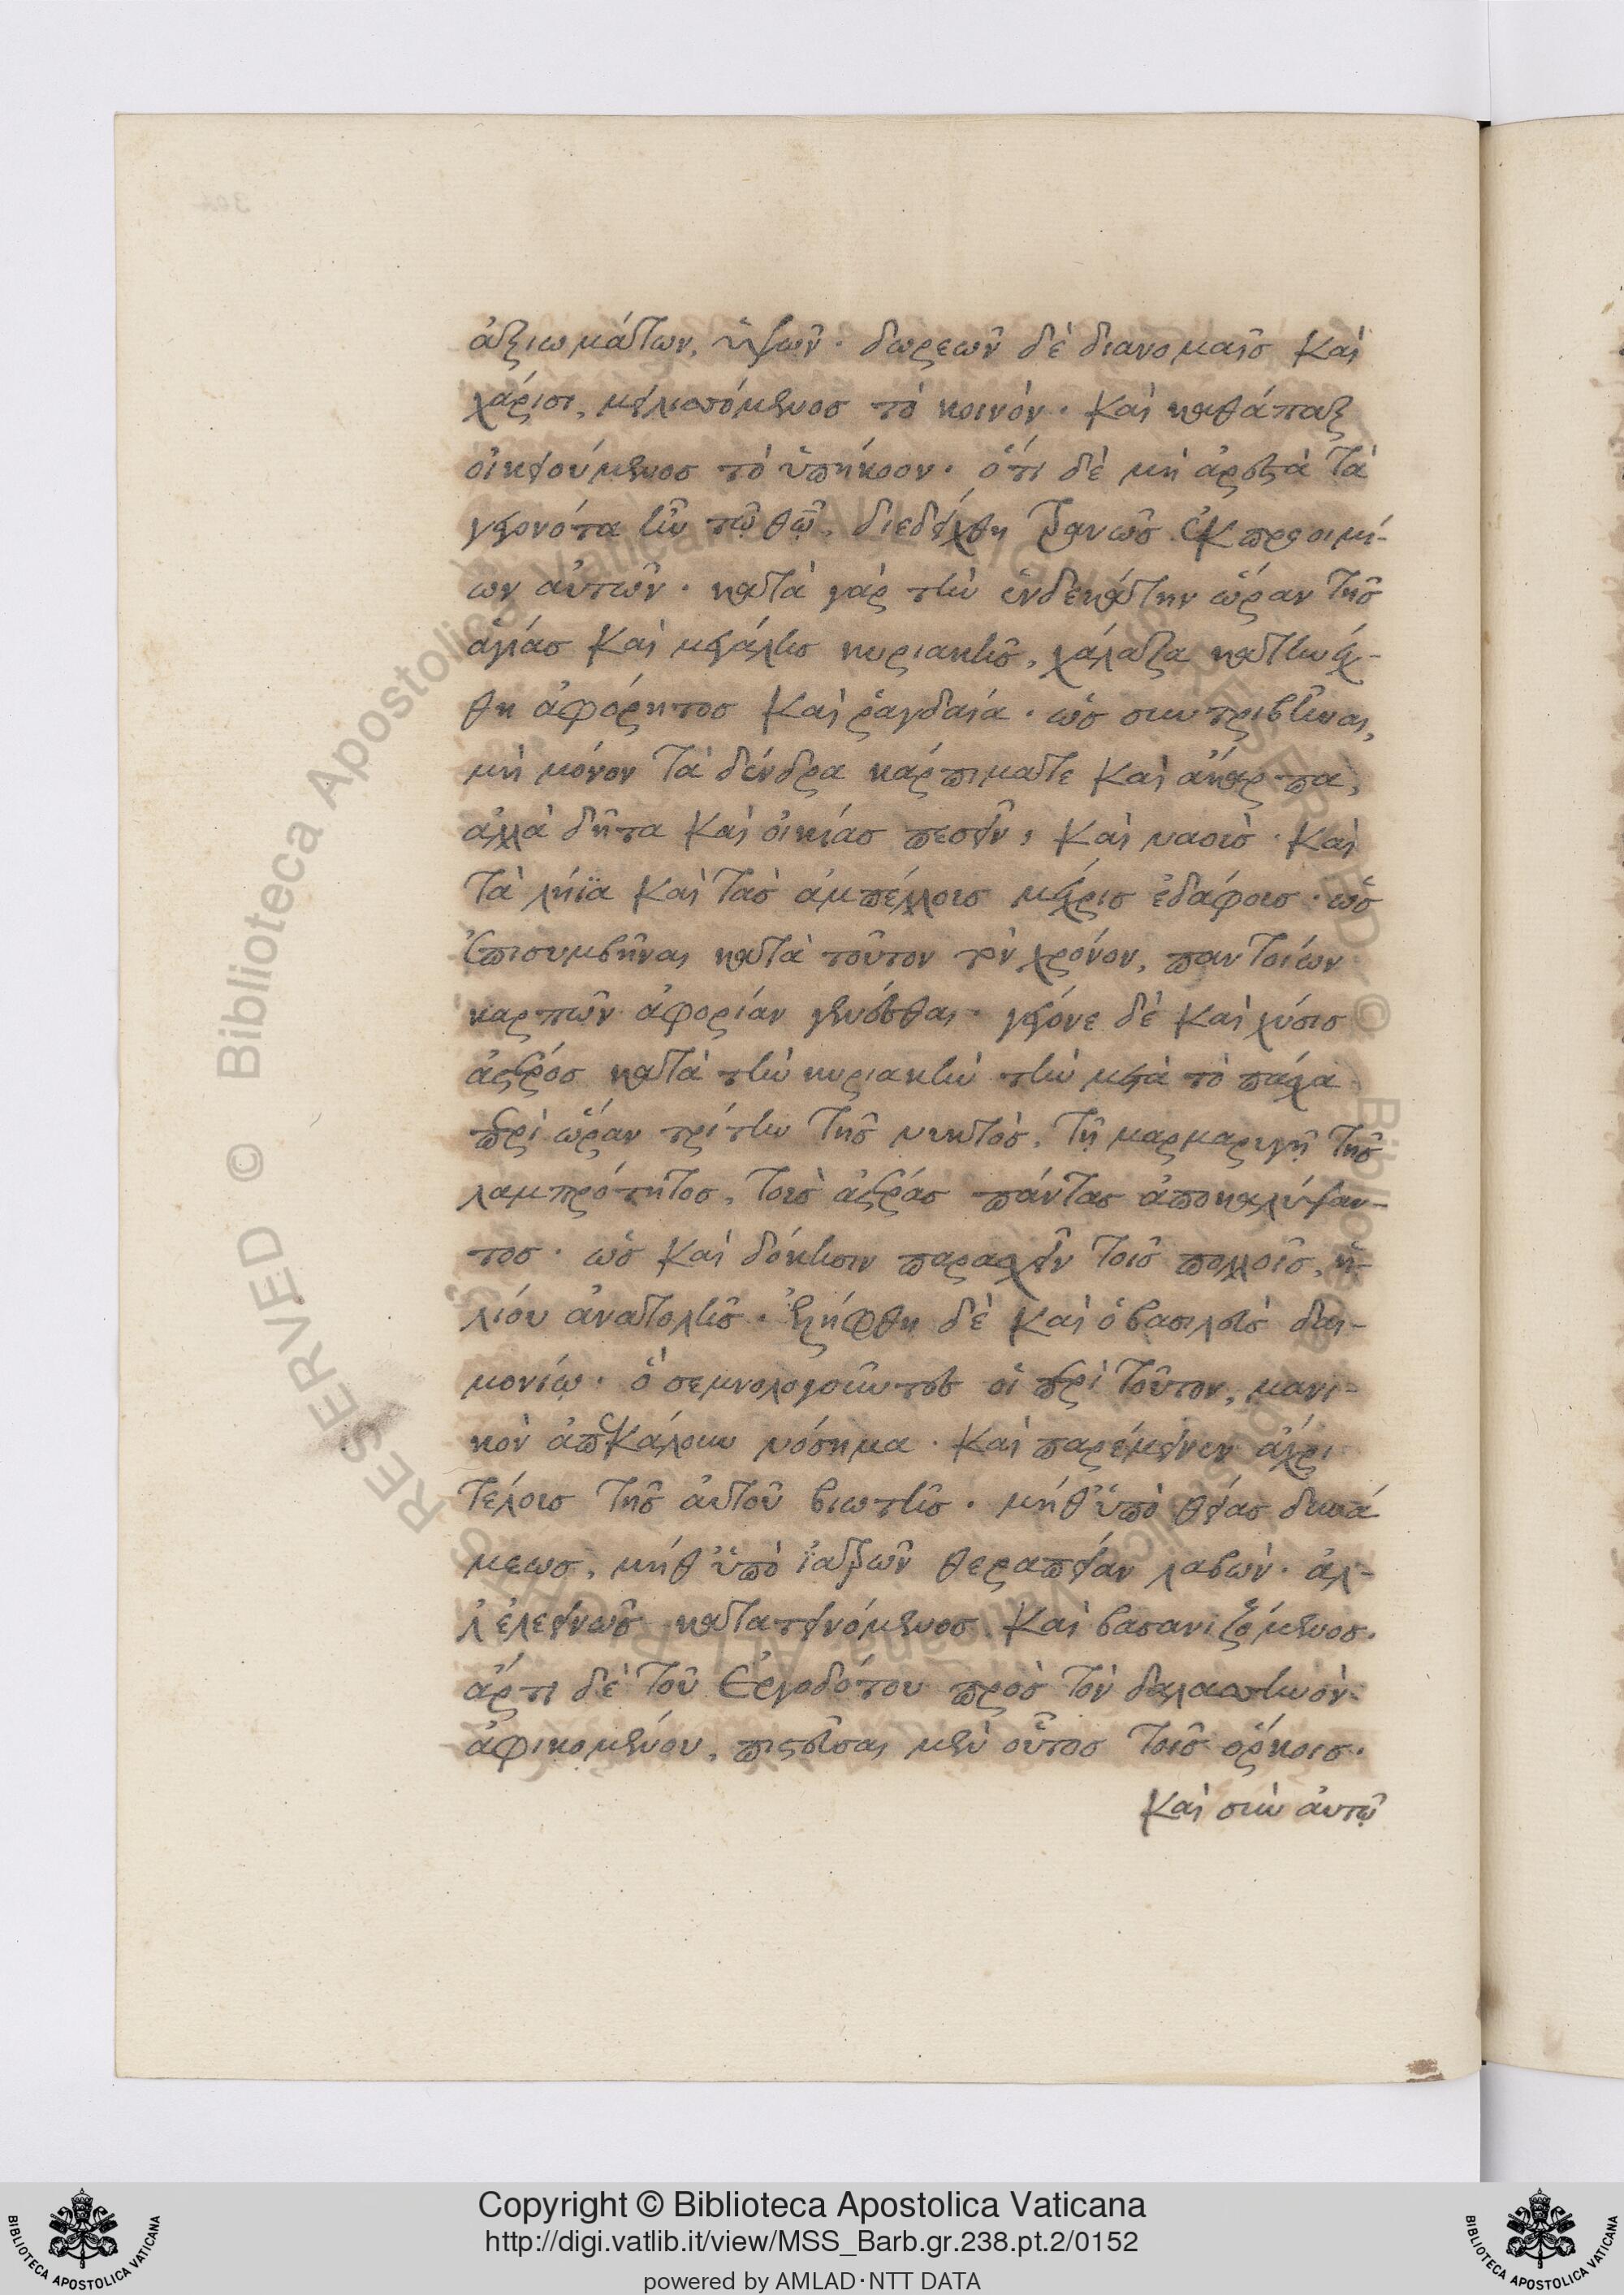 ἀξιωμάτων, ὑψῶν· δωρεῶν δὲ διανομαῖς καὶ
χάρισι, μειλισσόμενος τὸ κοινὸν· καὶ καθάπαξ
οἰκειούμενος τὸ ὑπήκοον· ὅτι δὲ μὴ ἀρεστὰ τὰ
γεγονότα ἦν τῷ θῷ, διεδείχθη ἱκανῶς ἐκ προοιμί-
ων αὐτῶν· κατὰ γὰρ τὴν ἑνδεκάτην ὥραν τῆς
ἁγίας καὶ μεγάλης κυριακῆς, χάλαζα κατηνέχ-
θη ἀφόρητος καὶ ῥαγδαία· ὡς συντριβῆναι,
μὴ μόνον τὰ δένδρα κάρπιμά τε καὶ ἄκαρπα,
ἀλλὰ δῆτα καὶ οἰκίας πεσεῖν, καὶ ναοὺς· καὶ
τὰ λήϊα καὶ τὰς ἀμπέλλους μέχρις ἐδάφους· ὡς
ἐπισυμβῆναι κατὰ τοῦτον τὸν χρόνον, παντοίων
καρπῶν ἀφορίαν γενέσθαι· γέγονε δὲ καὶ χύσις
ἀστέρος κατὰ τὴν κυριακὴν τὴν μετὰ τὸ πάσχα
περὶ ὥραν τρίτην τῆς νυκτὸς, τῇ μαρμαρυγῇ τῆς
λαμπρότητος, τοὺς ἀστέρας πάντας ἀποκαλύψαν-
τος· ὡς καὶ δόκησιν παρασχεῖν τοῖς πολλοῖς, ἡ-
λίου ἀνατολῆς· ἐξήφθη δὲ καὶ ὁ βασιλεὺς δαι-
μονίῳ· ὃ σεμνολογοῦντες οἱ περὶ τοῦτον, μανι-
κὸν ἀπεκάλουν νόσημα· καὶ παρέμεινεν ἄχρι
τέλους τῆς αὐτοῦ βιωτῆς· μήθ' ὑπὸ θείας δυνά
μεως, μήθ' ὑπὸ ἰατρῶν θεραπείαν λαβὼν· ἀλ-
λ' ἐλεεινῶς κατατεινόμενος καὶ βασανιζόμενος·
ἄρτι δὲ τοῦ Ἐργοδότου πρὸς τὸν δαλασσηνὸν
ἀφικομένου, πιστεῦσαι μὲν οὗτος τοῖς ὅρκοις·
καὶ σὺν αὐτῷ
Copyright © Biblioteca Apostolica Vaticana
http://digi.vatlib.it/view/MSS_Barb.gr.238.pt.2/0152
powered by AMLAD·NTT DATA